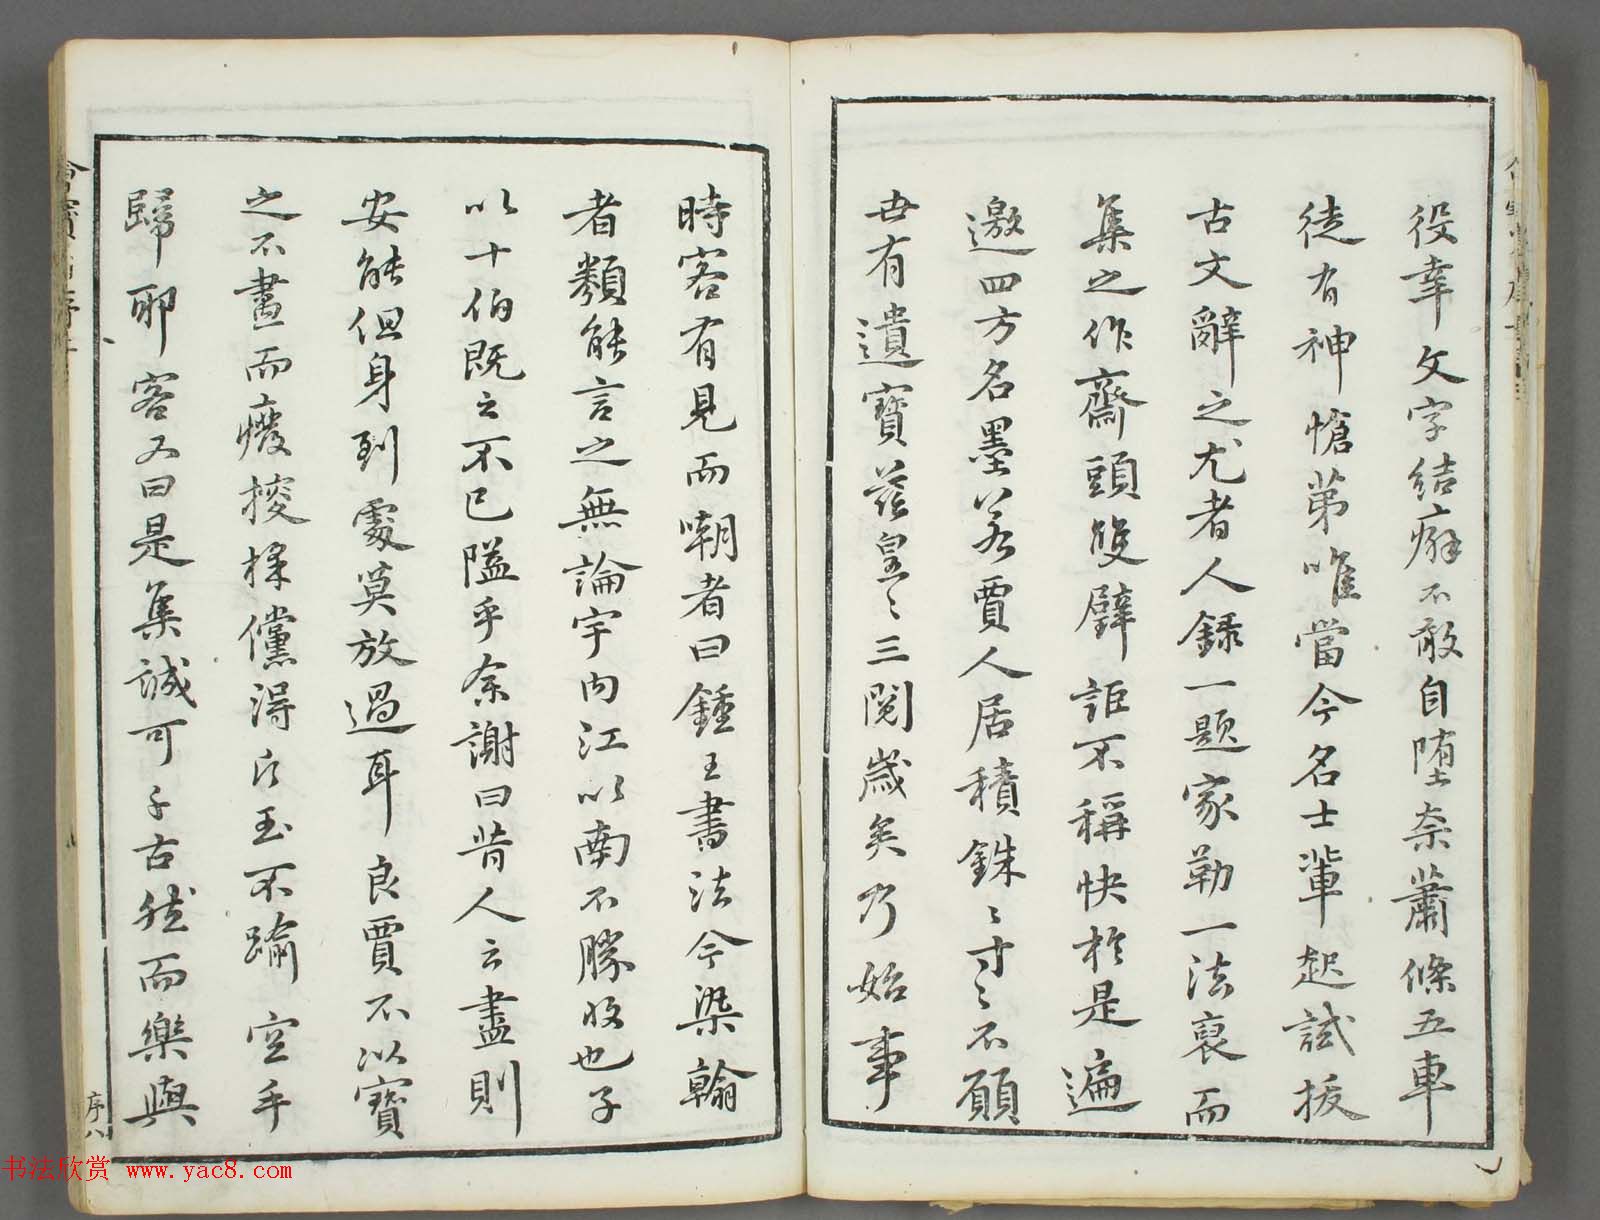 役幸文字結癖不敢自墮柰蕭條五車
徒有神愴第唯當今名士輩起試拔
古文辭之尤者人錄一題家勒一法裒而
集之作齋頭雙璧詎不稱快於是遍
邀四方名墨若賈人居積銖〻寸〻不願
世有遺寶茲皇〻三閱歲矣乃始事
時客有見而嘲者曰鍾王書法今染翰
者類能言之無論宇內江以南不勝收也子
以十伯既云不已隘乎余謝曰昔人云盡則
安能但身到處莫放過耳良賈不以寶
之不盡而癈掇採儻得片玉不踰空手
歸耶客又曰是集誠可千古然而樂與
序八
书法欣赏 www.yac8.com